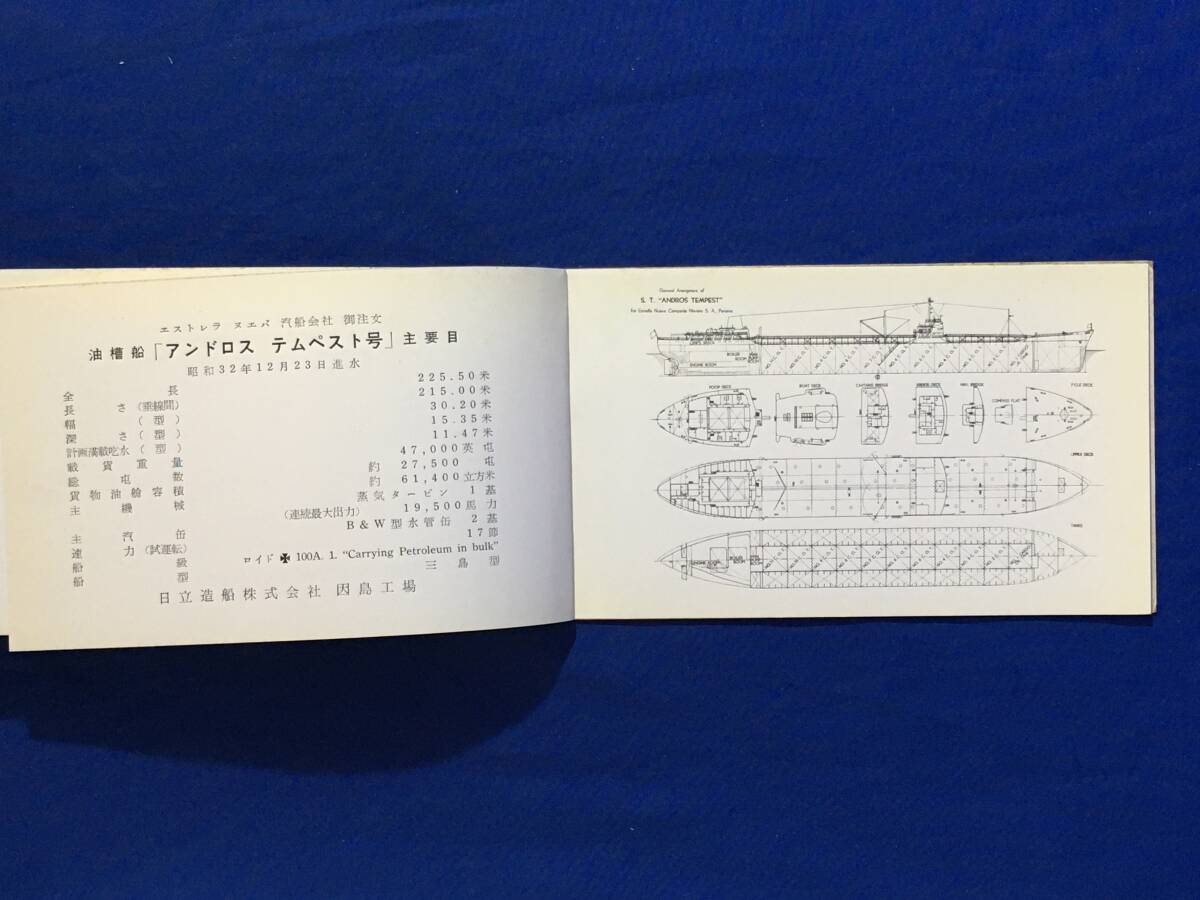 エストレラ ヌエバ 汽船会社 御注文
油槽船「アンドロス テムペスト号」主要目
昭和32年12月23日進水
全長 225.50米
長さ(垂線間) 215.00米
幅(型) 30.20米
深さ(型) 15.35米
計画満載吃水(型) 11.47米
載貨重量 47,000英屯
総屯数 約 27,500 屯
貨物油艙容積 約 61,400立方米
主機械 蒸気タービン 1基
(連続最大出力) 19,500馬力
主汽缶 B&W型水管缶 2基
速力(試運転) 17節
船級 ロイド ✠ 100A. 1. “Carrying Petroleum in bulk”
船型 三島型
日立造船株式会社 因島工場
General Arrangement of
S. T. "ANDROS TEMPEST"
for Estrella Nueva Compania Naviera S. A., Panama
BOILER ROOM
ENGINE ROOM
POOP DECK
BOAT DECK
CAPTAIN'S BRIDGE
BRIDGE DECK
NAV. BRIDGE
COMPASS FLAT
F'CLE DECK
UPPER DECK
TANKS
ENGINE ROOM
BOILER ROOM